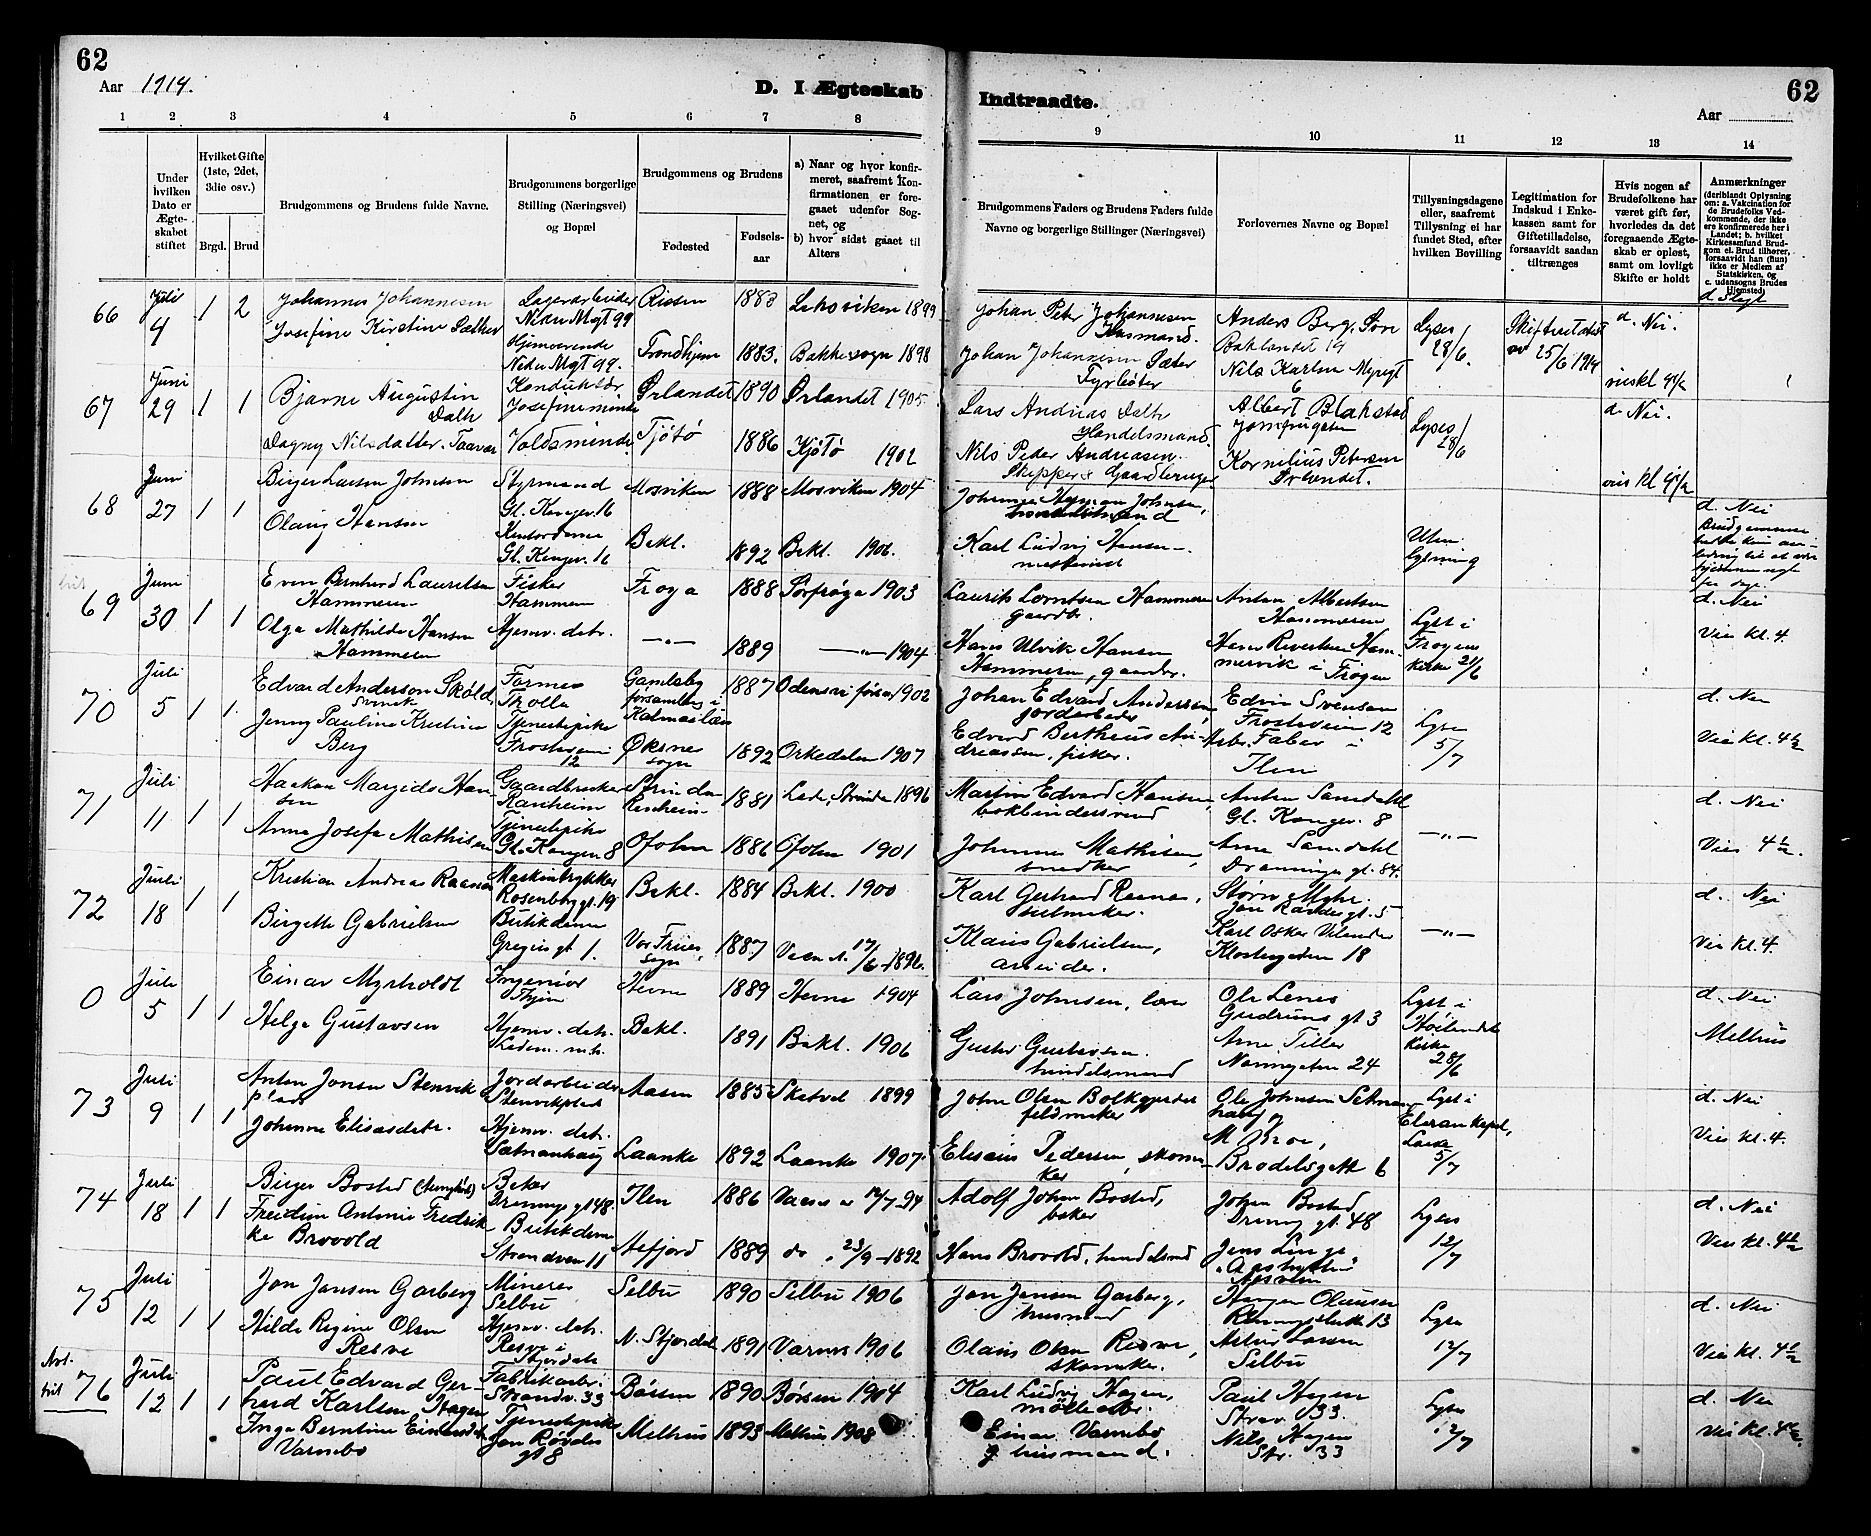 62
Aar 1914.
D. I Ægteskab
1 2 3 4 5 6 7 8
Under hvilken Dato er Ægteskabet stiftet
Hvilket Gifte (1ste, 2det, 3die osv.)
Brgd. Brud
Brudgommens og Brudens fulde Navne.
Brudgommens borgerlige Stilling (Næringsvei) og Bopæl
Brudgommens og Brudens
Fødested
Fødsels-aar
a) Naar og hvor konfirmeret, saafremt Konfirmationen er foregaaet udenfor Sognet, og
b) hvor sidst gaaet til Alters
Indtraadte.
62
Aar
9 10 11 12 13 14
Brudgommens Faders og Brudens Faders fulde Navne og borgerlige Stillinger (Næringsvei)
Forlovernes Navne og Bopæl
Tillysningsdagene eller, saafremt Tillysning ei har fundet Sted, efter hvilken Bevilling
Legitimation for Indskud i Enkekassen samt for Giftetilladelse, forsaavidt saadan tiltrænges
Hvis nogen af Brudefolkene har været gift før, hvorledes da det foregaaende Ægteskab er opløst, samt om lovligt Skifte er holdt
Anmærkninger (deriblandt Oplysning om: a. Vakcination for de Brudefolks Vedkommende, der ikke ere konfirmerede her i Landet; b. hvilket Kirkesamfund Brudgom el. Brud tilhører, forsaavidt han (hun) ikke er Medlem af Statskirken, og c. udensogns Brudes Hjemsted)
66 Juli 4 1 2 Johannes Johannesen
Lagerarbeider Nedre Mgt 99 Rissen 1883 Leksviken 1899
Johan Peter Johannesen Husmand.
Anders Berg, Søre Baklandet 19
Lyses 28/6.
Skifteattest av 25/6 1914
d. Nei.
Josefine Kirstine Sæther
Hjemværende Nedre Mgt 99. Trondhjem 1883. Bakke sogn 1898
Johan Johannesen Sæter Fyrbøter
Nils Karlsen Myregt 6
67 Juni 29 1 1 Bjarne Augustin Dalh
Konduktør Josefineminde Ørlandet 1890 Ørlandet 1905
Lars Andreas Dalh Handelsmand.
Albert Blakstad Jomfrugaten
Lyses 28/6
d. Nei.
Dagny Nilsdatter Taavær
Voldsminde Tjøtø 1886 Kjøtø 1902
Nils Peder Andreasen. Skipper & Gaardbruger.
Kornelius Petersen Ørlandet.
68 Juni 27 1 1 Birger Larsen Johnsen
Styrmand Gl. Kongev. 16 Mosviken 1888 Mosviken 1904
d. Nei
Olaug Hansen
Gl. Kongev. 16 Bakl. 1892 Bakl. 1906.
Karl Ludvig Hansen
Uten lysning
69 Juni 30 1 1 Even Bernhard Lauritsen Hammeren
Fisker Hammeren Frøya 1888 Sørfrøya 1903
Laurits Lorntsen Hammeren gaardb.
Anton Albertsen Hammeren
Lyst i Frøyens kirke 21/6
d. Nei
Olga Mathilde Hansen Hammeren
Hjemv. datr. —"— 1889 —"— 1904
Hans Ulvik Hansen Hammeren, gaardbr.
Hammervik i Frøyen
Vies kl. 4.
70 Juli 5 1 1. Edvard Anderson Sköld svensk
Former Tholla Gamleby församling i Kalmar län 1887 Odensvi försam 1902
Johan Edvard Andersson, jordarbeider
Edvin Svensen Frostaveien 12
Lyses 5/7
d. Nei
Jenny Pauline Kristine Berg
Tjenestepike Frostaveien 12 Øksnes sogn 1892 Orkedalen 1907
Edvard Bertheus Andreassen, fisker.
Arb. Faber i Ilen
Vies kl. 4½
71 Juli 11 1 1 Haakon Margido Hansen
Gaardbruker Ranheim Strinda Ranheim 1881 Lade, Strinda 1896
Martin Edvard Hansen, bokbindersvend
Anton Samdahl Gl. Kongev. 8
—"—
d. Nei
Anna Josefa Mathisen
Tjenestepike Gl. Kongev. 8 Ofoten 1886 Ofoten 1901
Johannes Mathisen, snedker
Arne Samdahl Dronningens gt. 84.
Vies 4½.
72 Juli 18 1 1 Kristian Andreas Raanes
Maskintrykker Rosenborggt. 19 Bakl. 1884 Bakl. 1900
Karl Gerhard Raanes, seilmaker.
Størn Myhr. Jon Raudes gt. 5
—"—
d. Nei
Birgitte Gabrielsen
Butikdame Gregus gt 1. Vor Frues sogn, 1887
Klaus Gabrielsen, arbeider.
Karl Oskar Velander Klostergaten 18
Vies kl. 4.
0 Juli 5 1 1 Einar Myrholdt
Ingeniør Thjem Hevne 1889 Hevne 1904
Lars Johnsen,
Ole Lenes Gudruns gt 3
Lyst i Høilandets kirke 28/6
d. Nei
Helga Gustavsen
Hjemv. datr. Bakl. 1891 Bakl. 1906
Gustav Gustavsen. handelsmand
Arne Tiller Nonnegaten 24
Melhus
73 Juli 9 1 1 Anton Jonsen Stenvik plads
Jordarbeider Stenvikplads Aasen 1885 Skatval 1899
John Olsen Balkgjerdet feldmaker
Ole Johnsen Sætnanhaug
Lyst i Elvran kapel, Laanke 5/7
d. Nei
Johanna Elisæusdatr.
Hjemv. datr. Sætnanhaug Laanke 1892 Laanke 1907
Elisæus Pedersen, skomaker
M. Broe, Brodalsgaten 6
Vies kl. 4.
74 Juli 18 1 1 Birger Bosted
Baker Dronnings gt 48. Ilen 1886
Adolf Johan Bosted, baker
Johan Bosted Dronng. gt. 48
Lyses 12/7
d. Nei
Antonie Fredrikke Brovold
Butikdame Strandveien 11 Aafjord 1889 do. 23/9-1892
Hans Brovold, handelsmd
Jens Linge
Vies kl. 4½
75 Juli 12 1 1 Jon Jensen Garberg
Minerer Selbu Selbu 1890 Selbu 1906
Jon Jensen Garberg, husmand
Haagen Olausen
Lyses 12/7
d. Nei
Hilda Regine Olsen Resve
Hjemv. datr. Resve i Stjørdalen N. Stjørdal 1891 Værnes 1906
Olaus Olsen Resve, skomaker.
Larsen Selbu
Vies kl. 4½
76 Juli 12 1 1 Paul Edvard Gerhard Karlsen Hagen
Fabrikarb. Strandv. 33 Børsen 1890 Børsen 1904
Karl Ludvig Hagen, møllearb.
Paul Hagen Strav. 33.
Lyses 12/7
d. Nei
Inga Berntine Einarsdatr Varmbo
Tjenestepike Jon Raudes gt 8 Melhus 1893 Melhus 1908
Einar Varmbo husmand.
Nils Hagen Str. 33
Vies kl. 4½.